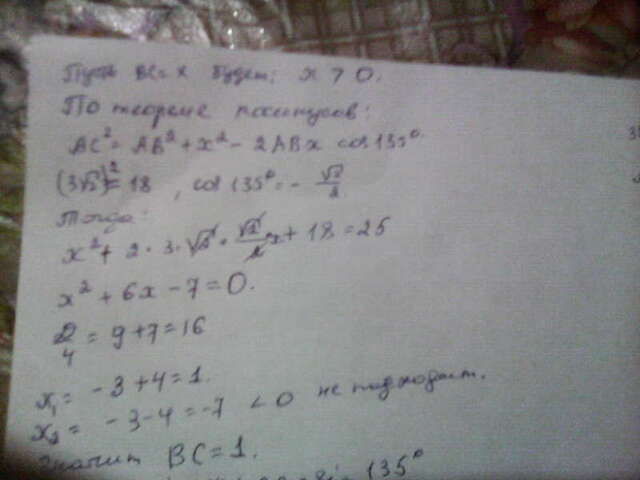 Пусть BC = x будет; x > 0.
По теореме косинусов:
AC² = AB² + x² - 2ABx cos 135°
(3√2)² = 18, cos 135° = - √2/2
Тогда:
x² + 2 · 3 · √2 · √2/2 x + 18 = 25
x² + 6x - 7 = 0.
D/4 = 9 + 7 = 16
x₁ = -3 + 4 = 1.
x₂ = -3 - 4 = -7 < 0 не подходит.
Значит BC = 1.
135°